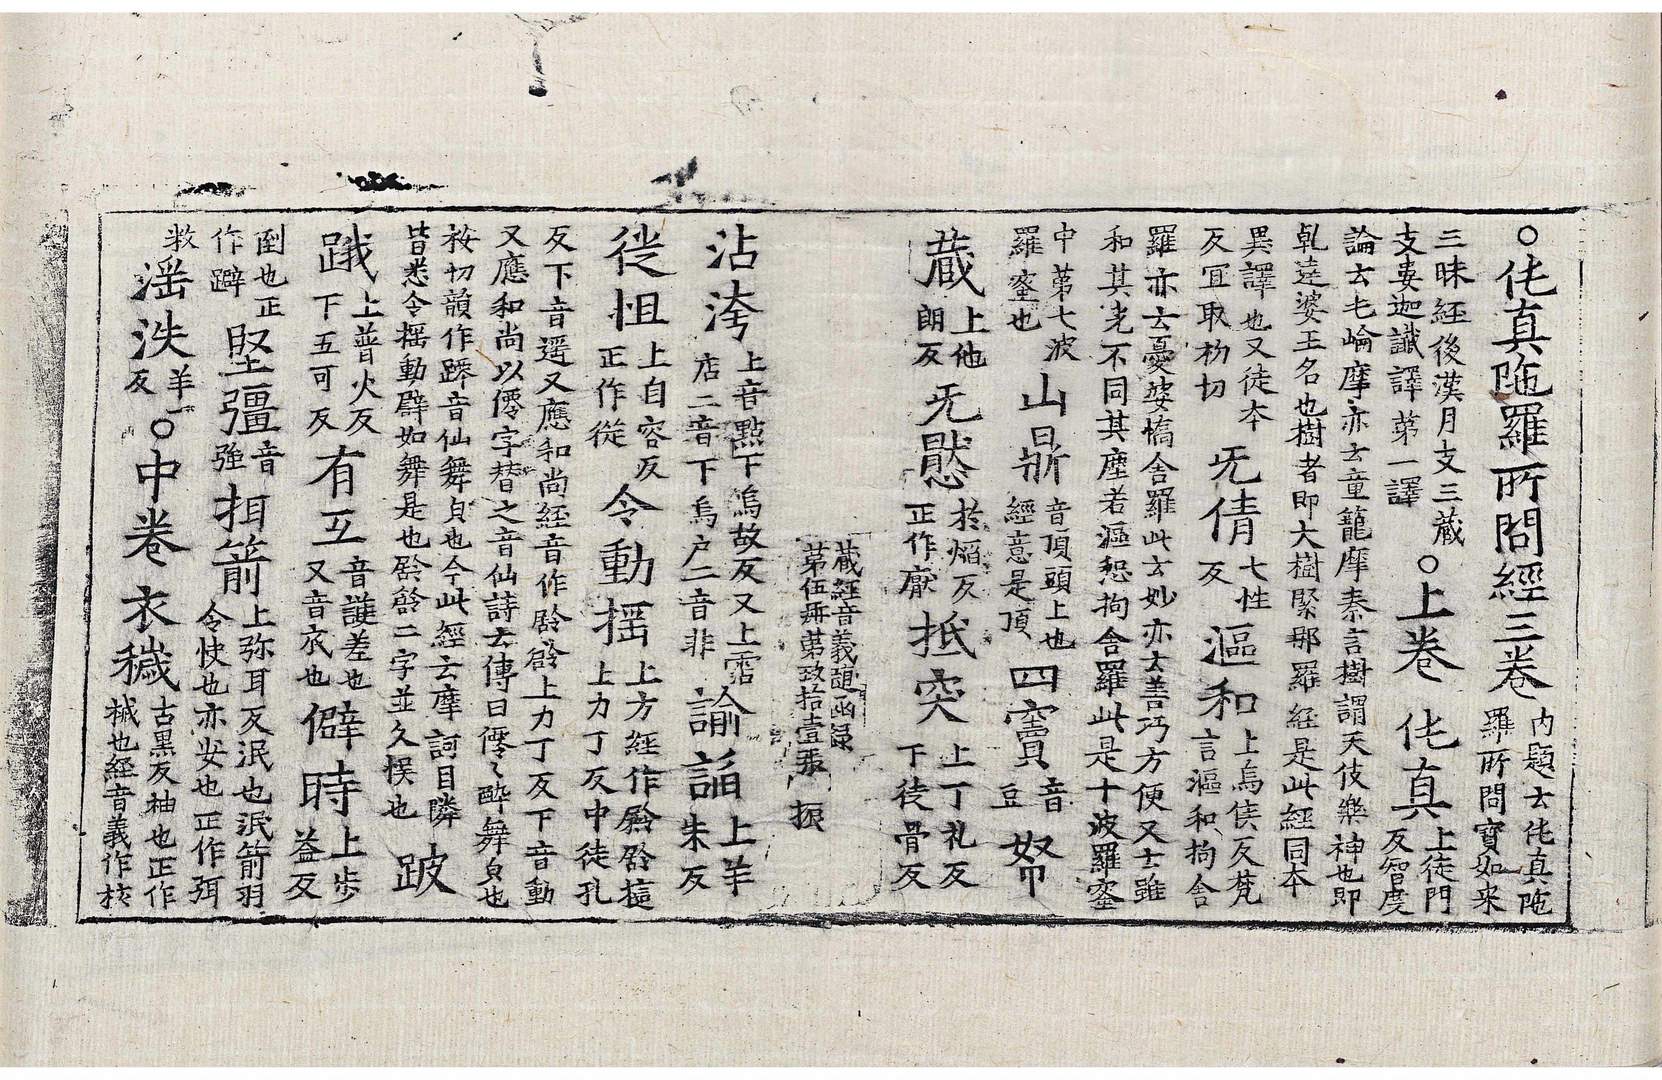 ○伅真陁羅所問經三卷 內題云伅真陁
羅所問寶如来
三昧經後漢月支三蔵
支婁迦讖譯苐一譯 ○上卷 伅真 上徒門
反智度
論云屯崘摩亦云童籠摩秦言樹謂天伎樂神也即
乹達婆王名也樹者即大樹緊那羅經是此經同本
異譯也又徒本
反冝取枌切 无倩 七性
反 漚和 上烏侯反梵
言漚和拘舍
羅亦云憂婆憍舍羅此云妙亦云善巧方便又云雖
和其光不同其塵若漚恕拘舍羅此是十波羅蜜
中苐七波
羅蜜也 山鼎 音頂頭上也
經意是頂 四竇 音
豆 帑
蔵 上他
朗反 无懕 於焔反
正作厭 抵突 上丁礼反
下徒骨反
蔵經音義隨函録
苐伍冊苐玖拾壹張 振
沾洿 上音點下烏故反又上霑
店二音下烏户二音非 諭 上羊
朱反
徔怚 上自容反
正作從 令動揺 上方經作
上力丁反中徒孔
反下音遥又應和尚經音作 上力丁反下音動
又應和尚以僊字替之音仙詩云傳曰僊〻醉舞皃也
桉切韻作躚音仙舞皃也今此經云摩訶目隣
皆悉令揺動辟如舞是也 二字並久悮也 跛
䟪 上普火反
下五可反 有互 音護差也
又音 也 僻時 上步
益反
倒也正
作躃 堅彊 音
強 挕箭 上弥耳反泯也泯箭羽
令快也亦安也正作弭
救 滛泆 羊一
反 ○中卷 衣穢 古黒反袖也正作
也經音義作